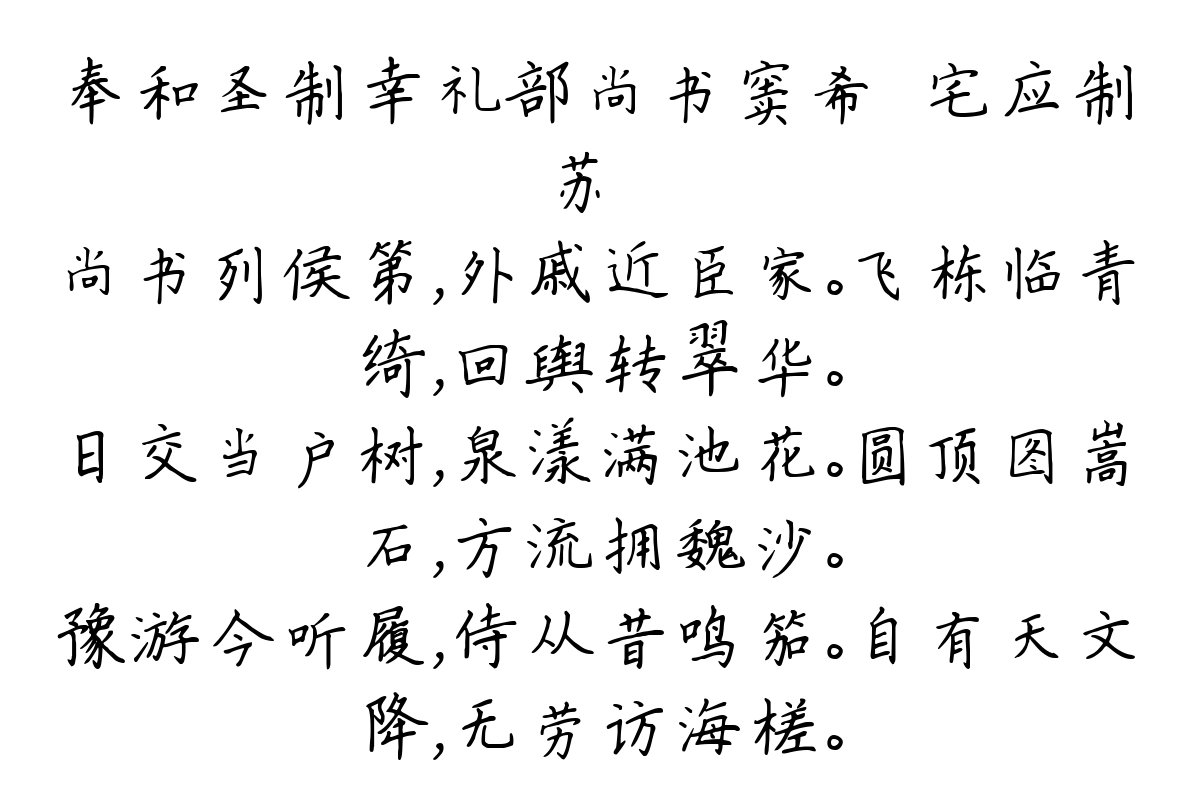 奉和圣制幸礼部尚书窦希 宅应制
苏
尚书列侯第,外戚近臣家。飞栋临青
绮,回舆转翠华。
日交当户树,泉漾满池花。圆顶图嵩
石,方流拥魏沙。
豫游今听履,侍从昔鸣笳。自有天文
降,无劳访海槎。